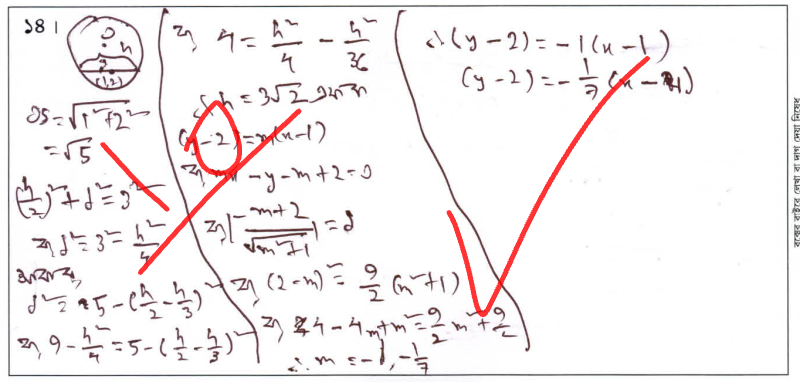 ১৪।
O
h
(1,2)
OS = √(1² + 2²)
= √5
(h/2)² + d² = 3²
বা, d² = 3² = h²/4
আবার,
d² = 5 - (h/2 - h/3)²
বা, 9 - h²/4 = 5 - (h/2 - h/3)²
বা, 4 = h²/4 - h²/36
∴ h = 3√2 একক
(y-2) = m(x-1)
বা, mx - y - m + 2 = 0
বা, |(-m+2)/√(m²+1)| = d
বা, (2-m)² = 9/2 (m²+1)
বা, 4 - 4m + m² = 9/2 m² + 9/2
∴ m = -1, -1/7
∴ (y-2) = -1(x-1)
(y-2) = -1/7 (x-1)
বক্সের বাইরে লেখা বা দাগ দেয়া নিষেধ